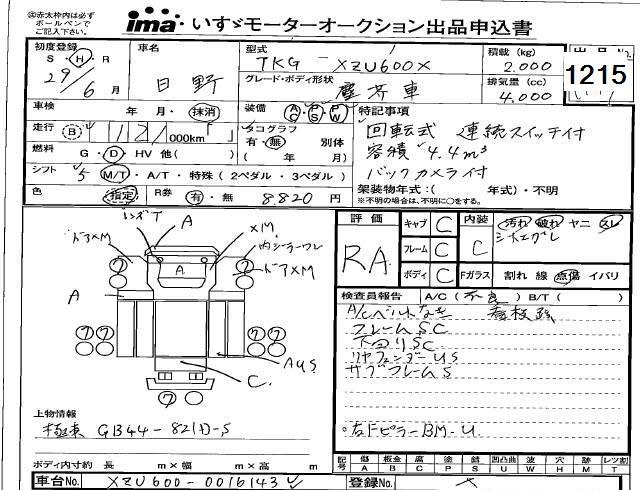 ㊟赤太枠内は必ずボールペンでご記入下さい。
ima いすゞモーターオークション出品申込書
初度登録 S・H・R 29年 6月
車名 日野
型式 TKG - XZU600X
グレード・ボディ形状 塵芥車
積載 (kg) 2.000
排気量 (cc) 4.000
1215
車検 年 月・抹消
装備 AC PS PW
特記事項
走行 B 112,000km
タコグラフ 有・無 別体 ( 年 月)
回転式 連続スイッチ付
燃料 G・D・HV 他( )
容積 4.4m³
シフト 5 M/T・A/T・特殊 (2ペダル・3ペダル)
バックカメラ付
色 指定 R券 有・無 8.820円
架装物年式:( 年式)・不明
※不明の場合は、不明に○をする。
評価 RA
キャブ C
フレーム C
ボディ C
内装 C
汚れ 破れ ヤニ スレ
シートエグレ
Fガラス 割れ 線 点傷 イバリ
レンズT A XM 内シラーワレ
ドアXM A ドアXM
A
7 7 7 7 7 7 7
AUS
C
検査員報告 A/C(不良) B/T( )
A/Cベルトなき 看板跡
フレームSC
下回りSC
リヤフェンダーUS
サブフレームS
右FピラーBM-U
上物情報
極東 GB44-821D-S
ボディ内寸約 長 m×幅 m×高 m
記号 傷A 板金B 腐C 塗P 錆S 凹凸曲U 波W 穴H 跡M レツ割T
車台No. XZU600-0016143
登録No.